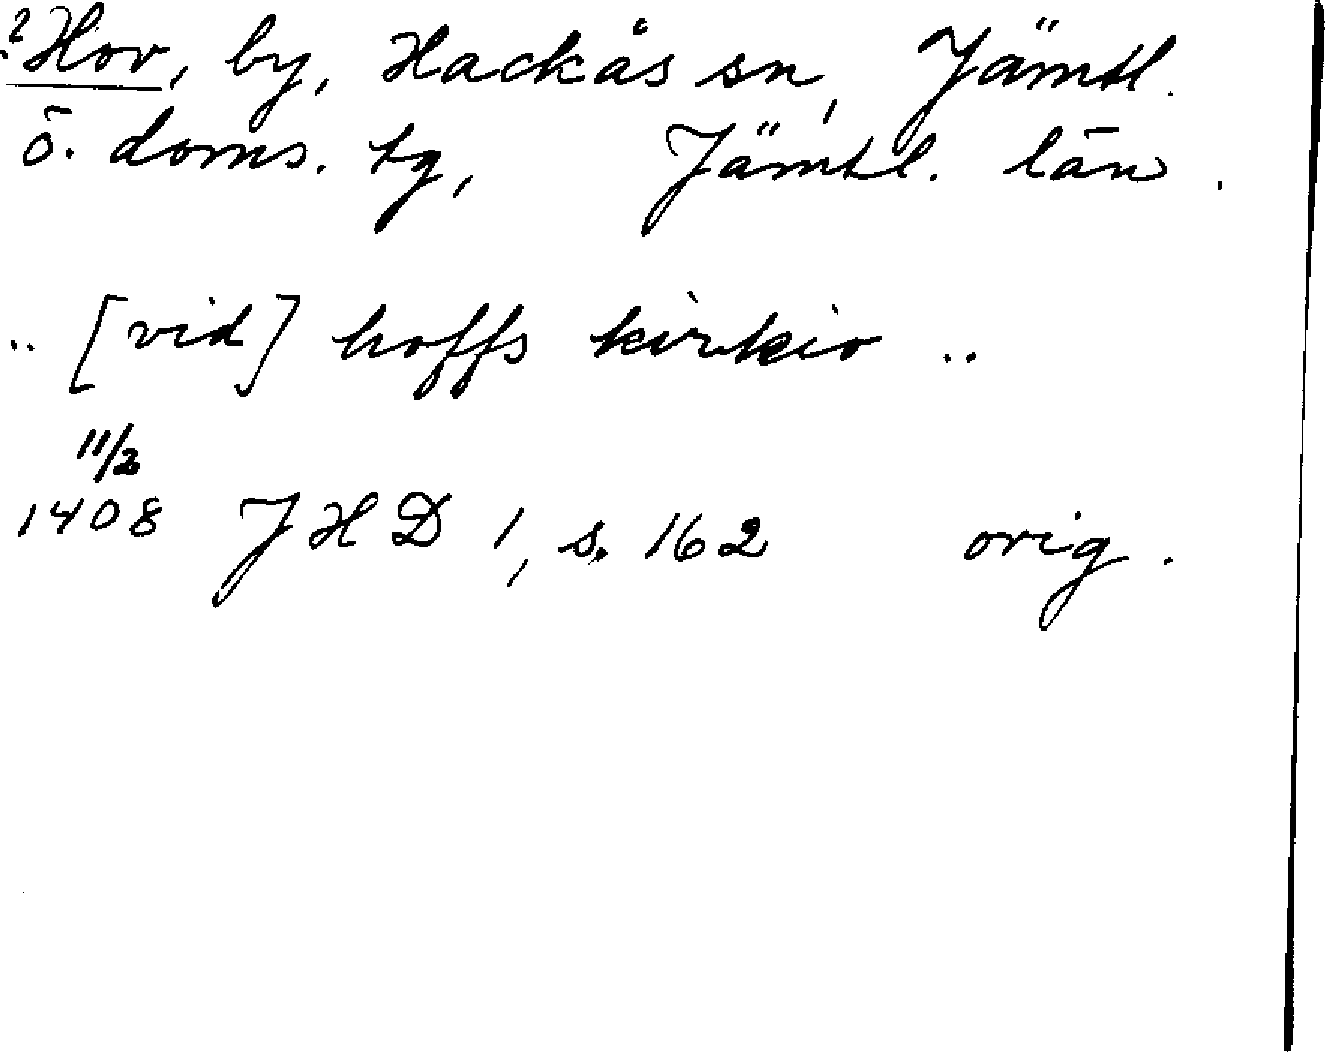 ?Hov, by, Hackås sn, Jämtl.
ö. doms. tg, Jämtl. län.
.. [vid] hoffs kirkio ..
11/2
1408 JHD 1, s. 162 orig.